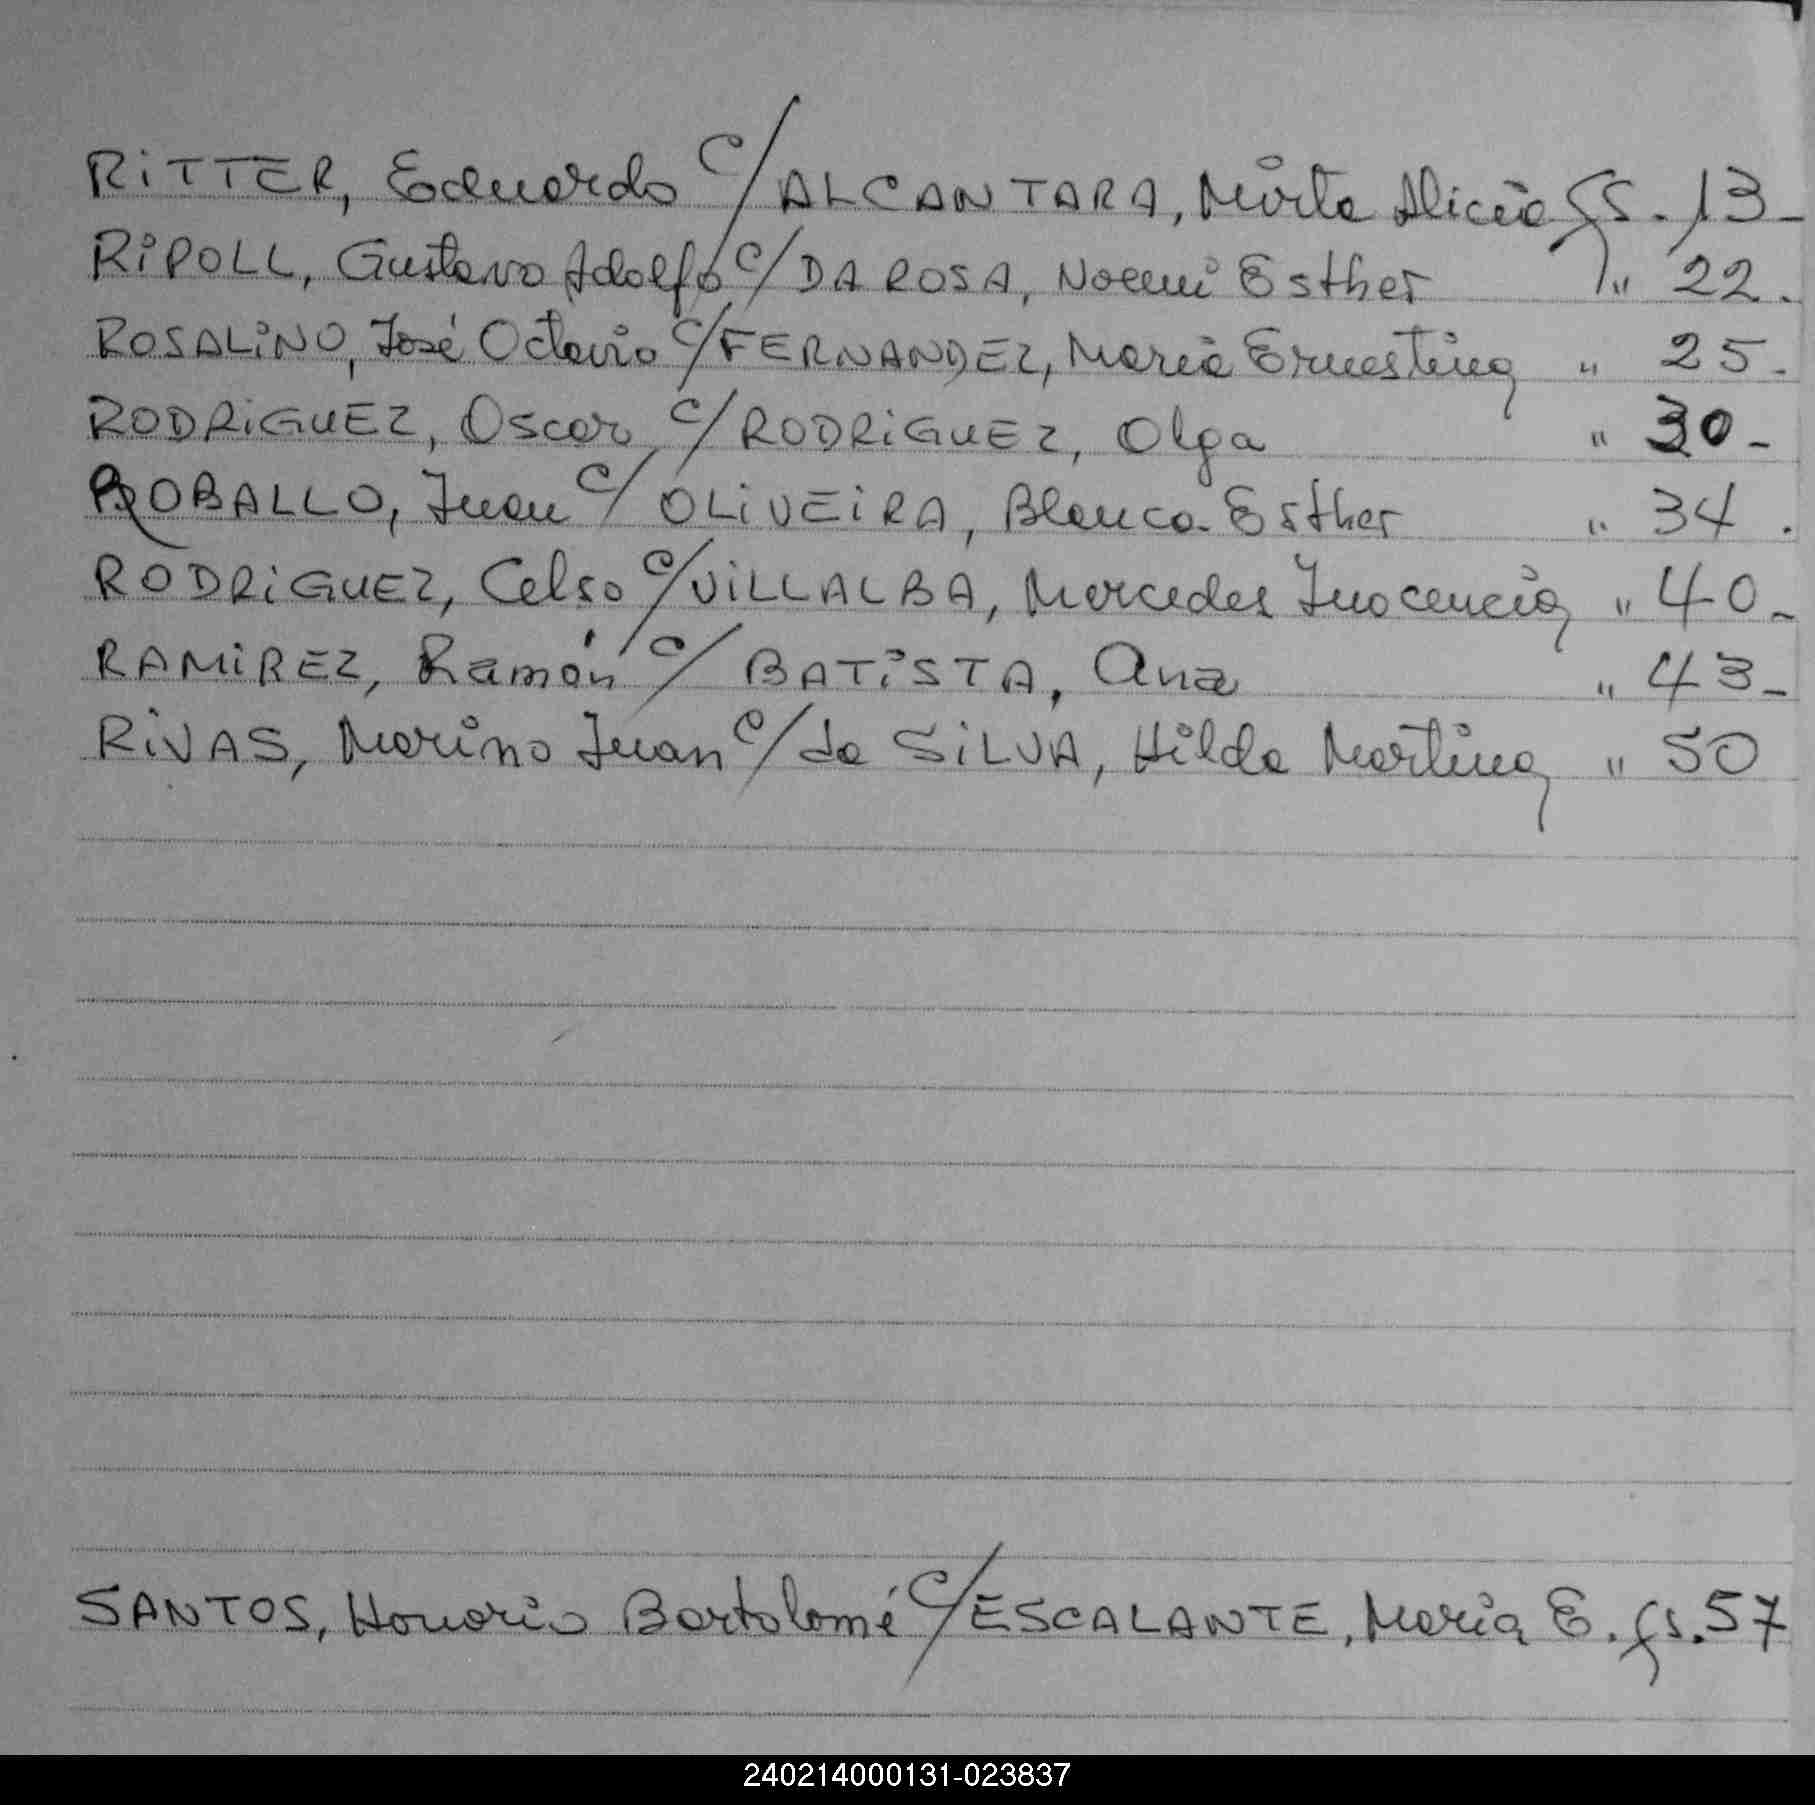 RiTTER, Eduardo c/ ALCANTARA, Mirta Alicia fs. 13-
RiPOLL, Gustavo Adolfo c/ DA ROSA, Noemi Esther " 22.
ROSALiNO, José Octavio c/ FERNANDEZ, Maria Ernestina " 25.
RODRiGUEZ, Oscar c/ RODRiGUEZ, Olga " 30-
ROBALLO, Juan c/ OLiVEiRA, Blanca Esther " 34.
RODRiGUEZ, Celso c/ ViLLALBA, Mercedes Inocencia " 40-
RAMiREZ, Ramón c/ BATiSTA, Ana " 43-
RiVAS, Marino Juan c/ da SiLVA, Hilda Martina " 50
SANTOS, Honorio Bartolomé c/ ESCALANTE, Maria E. fs. 57
240214000131-023837